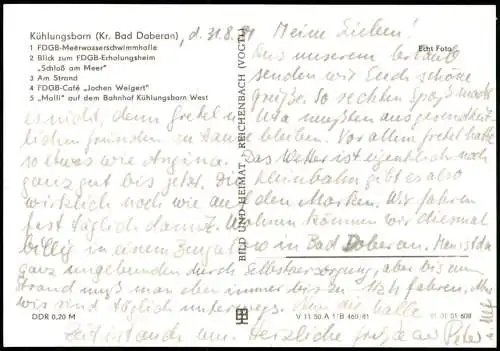 Kühlungsborn (Kr. Bad Doberan)
1 FDGB-Meerwasserschwimmhalle
2 Blick zum FDGB-Erholungsheim
„Schloß am Meer"
3 Am Strand
4 FDGB-Café „Jochen Weigert"
5 „Molli" auf dem Bahnhof Kühlungsborn West
Echt Foto
, d. 31.8.81
Meine Lieben!
Aus unserem Urlaub
senden wir Euch schöne
Grüße. So rechten Spaß macht
es nicht, denn Gretel u. Uta mußten aus gesundheit-
lichen Gründen zu Hause bleiben. Vor allem Gretel hatte
so etwas wie Angina. Das Wetter ist eigentlich noch
ganz gut bis jetzt. Die Kleinbahn gibt es also
wirklich noch wie auf den Marken. Wir fahren
fast täglich damit. Wohnen können wir diesmal
billig in einem Bungalow in Bad Doberan. Man ist da
ganz ungebunden durch Selbstversorgung, aber eben zum
Strand muß man eben immer bis zu 1/2 h fahren. Aber
wir sind täglich unterwegs.
Zeit ist auch um. Herzliche Grüße
Peter
BILD UND HEIMAT · REICHENBACH (VOGTL)
DDR 0,20 M
V 11 50 A 1 B 460/81
01 01 01 608